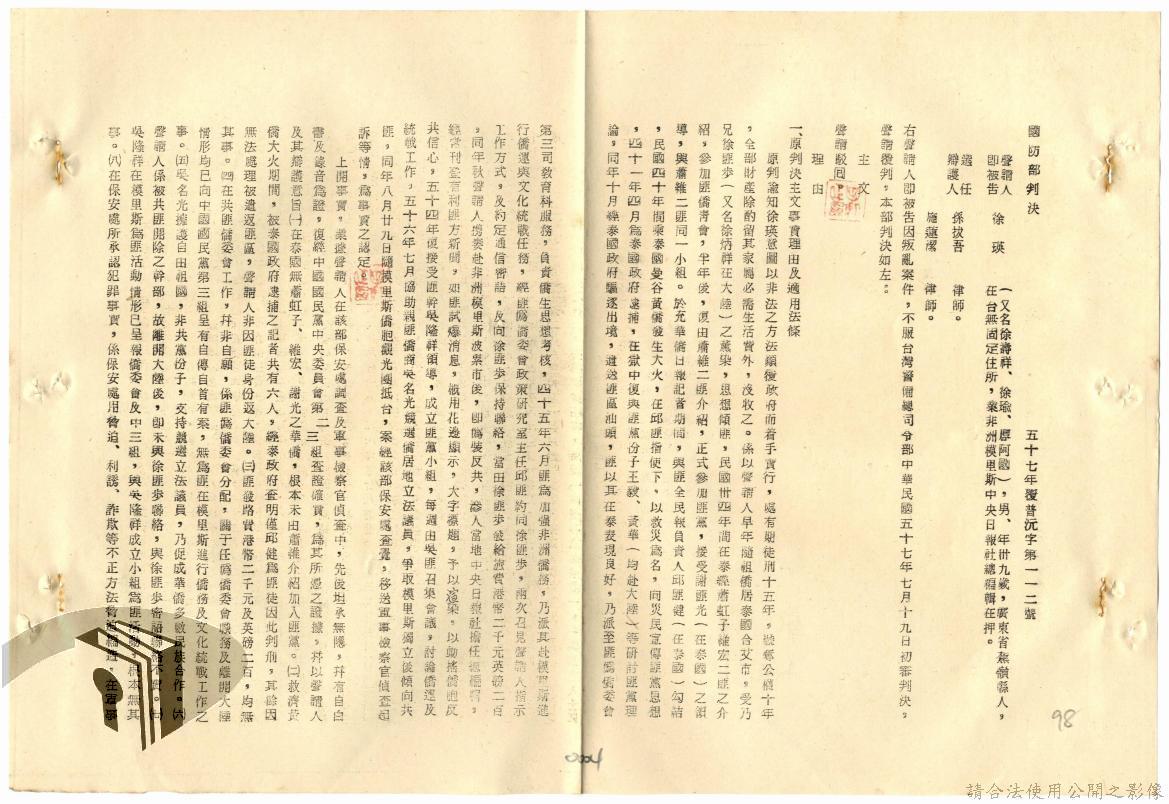 國防部判決
五十七年覆普沅字第一一二號
聲請人
即被告 徐瑛 (又名徐壽祥、徐瑜、原阿國),男、年卅九歲,廣東省蕉嶺縣人,
在台無固定住所,業非洲模里斯中央日報社總編輯在押。
選任
辯護人 孫拔吾 律師。
施蘊潔 律師。
右聲請人即被告因叛亂案件,不服台灣警備總司令部中華民國五十七年七月十九日初審判決,
聲請覆判,本部判決如左。
主文
聲請駁回。
理由
一、原判決主文事實理由及適用法條
原判論知徐瑛意圖以非法之方法顛覆政府而着手實行,處有期徒刑十五年,褫奪公權十年
,全部財產除酌留其家屬必需生活費外,沒收之。係以聲請人早年隨祖僑居泰國合艾市,受乃
兄徐匪步(又名徐炳祥在大陸)之薰染,思想傾匪,民國卅四年間在泰經蕭虹子維宏二匪之介
紹,參加匪僑青會,半年後,復由蕭維二匪介紹,正式參加匪黨,接受謝匪光(在泰國)之領
導,與蕭維二匪同一小組。於充華僑日報記者期間,與匪全民報負責人邱匪健(在泰國)勾結
,民國四十年間乘泰國曼谷黃橋發生大火,在邱匪指使下,以救災為名,向災民宣傳匪黨思想
,四十一年四月為泰國政府逮捕,在獄中復與匪黨份子王毅、黃華(均赴大陸)等研討匪黨理
論,同年十月經泰國政府驅逐出境,遣送匪區汕頭,匪以其在泰表現良好,乃派至匪偽僑委會
第三司教育科服務,負責僑生思想考核,四十五年六月匪為加強非洲僑務,乃派其赴模里斯進
行僑運與文化統戰任務,經匪偽僑委會政策研究室主任邱匪約同徐匪步,兩次召見聲請人指示
工作方式,及約定通信密語,及向徐匪步保持聯絡,當由徐匪步發給旅費港幣二千元英磅二百
,同年秋聲請人偶奏赴非洲模里斯波累市後,即偽裝反共,滲入當地中央日報社擔任總編輯,
經常刊登有利匪方新聞,如匪試爆消息,概用花邊顯示,大字標題,予以渲染,以動搖僑胞反
共信心,五十四年復接受匪幹吳隆祥領導,成立匪黨小組,每週由吳匪召集會議,討論僑運及
統戰工作,五十六年七月協助親匪僑商吳名光競選僑居地立法議員,爭取模里斯獨立後傾向共
匪,同年八月廿九日隨模里斯僑胞觀光團抵台,案經該部保安處查覺,移送軍事檢察官偵查起
訴等情,為事實之認定。
上開事實,業據聲請人在該部保安處調查及軍事檢察官偵查中,先後坦承無隱,并有自白
書及錄音為證,復經中國國民黨中央委員會第二、三組查證確實,為其所憑之證據,并以聲請人
及其辯護意旨㈠在泰國無蕭虹子、維宏、謝光之華僑,根本未由蕭維介紹加入匪黨。㈡救濟黃
橋大火期間,被泰國政府逮捕之記者共有六人,經泰政府查明僅邱健為匪徒因此判刑,其餘因
無法處理被遣返匪區,聲請人非因匪徒身份返大陸。㈢匪發路費港幣二千元及英磅二百,均無
其事。㈣在共匪僑委會工作,幷非自願,係匪偽僑委會分配,關于任偽僑委會職務及離開大陸
情形均已向中國國民黨第三組呈有自傳自首有案,無為匪在模里斯進行僑務及文化統戰工作之
事。㈤吳名光擁護自由祖國,非共黨份子,支持競選立法議員,乃促成華僑多數民族合作。㈥
聲請人係被共匪開除之幹部,故離開大陸後,即未與徐匪步聯絡,與徐匪步密語聯絡不實。㈦
吳隆祥在模里斯為匪活動情形已呈報僑委會及中三組,與吳隆祥成立小組為匪活動,根本無其
事。㈧在保安處所承認犯罪事實,係保安處用脅迫、利誘、詐欺等不正方法脅迫編造,在軍事
98
0004
請合法使用公開之影像